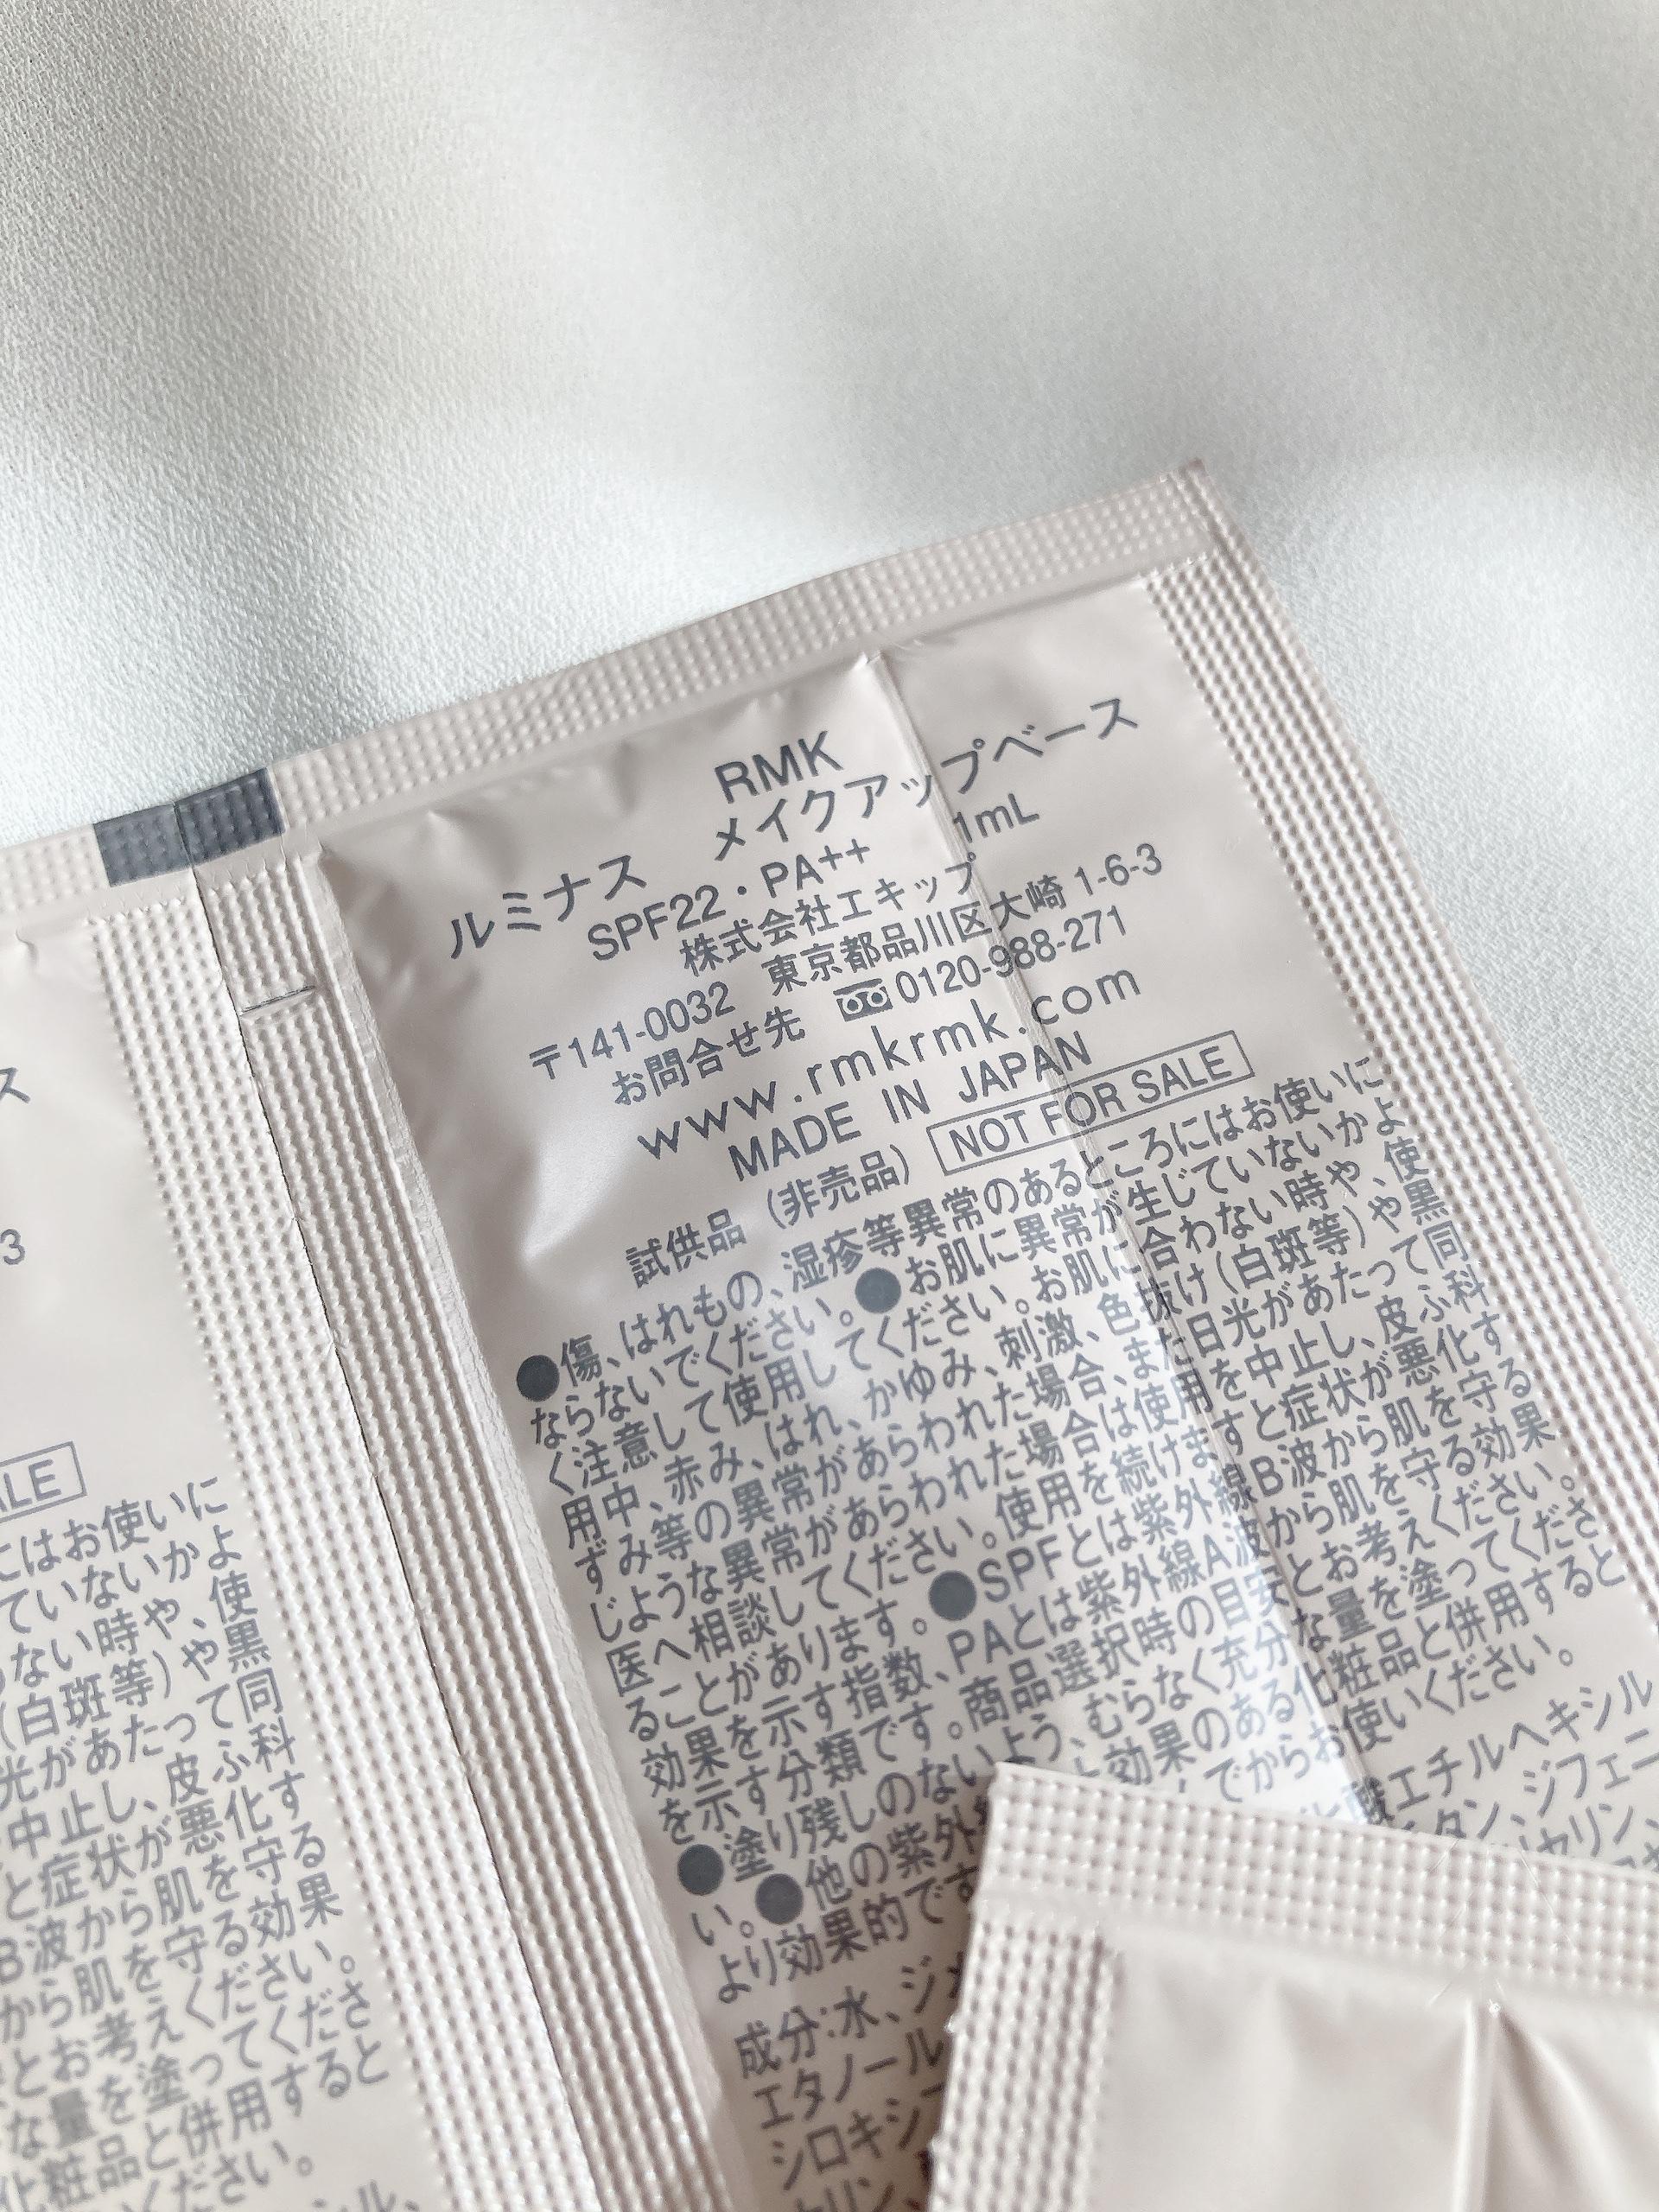 RMK
ルミナス　メイクアップベース
SPF22・PA++　1mL
株式会社エキップ
〒141-0032　東京都品川区大崎 1-6-3
お問合せ先　0120-988-271
www.rmkrmk.com
MADE IN JAPAN
試供品（非売品） NOT FOR SALE
●傷、はれもの、湿疹等異常のあるところにはお使いに
ならないでください。●お肌に異常が生じていないかよ
く注意して使用してください。お肌に合わない時や、使
用中、赤み、はれ、かゆみ、刺激、色抜け（白斑等）や黒
ずみ等の異常があらわれた場合、また日光があたって同
じような異常があらわれた場合は使用を中止し、皮ふ科
医へ相談してください。使用を続けますと症状が悪化す
ることがあります。●SPFとは紫外線B波から肌を守る
効果を示す指数、PAとは紫外線A波から肌を守る効果
を示す分類です。商品選択時の目安とお考えください。
●塗り残しのないよう、むらなく充分な量を塗ってくださ
い。●他の紫外 効果のある化粧品と併用すると
より効果的です でからお使いください。
成分:水、ジメ 酸エチルヘキシル
エタノール タン、ジフェニ
シロキシ リン、
ス
3
LE
にはお使いに
ていないかよ
ない時や、使
（白斑等）や黒
光があたって同
中止し、皮ふ科
と症状が悪化す
B波から肌を守る
から肌を守る効果
とお考えください。
な量を塗ってくださ
化粧品と併用すると
ください。
シル、